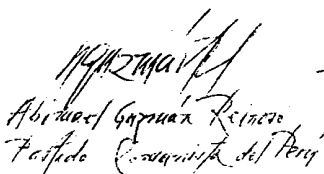 aguzmán
Abimael Guzmán Reinoso
Partido Comunista del Perú